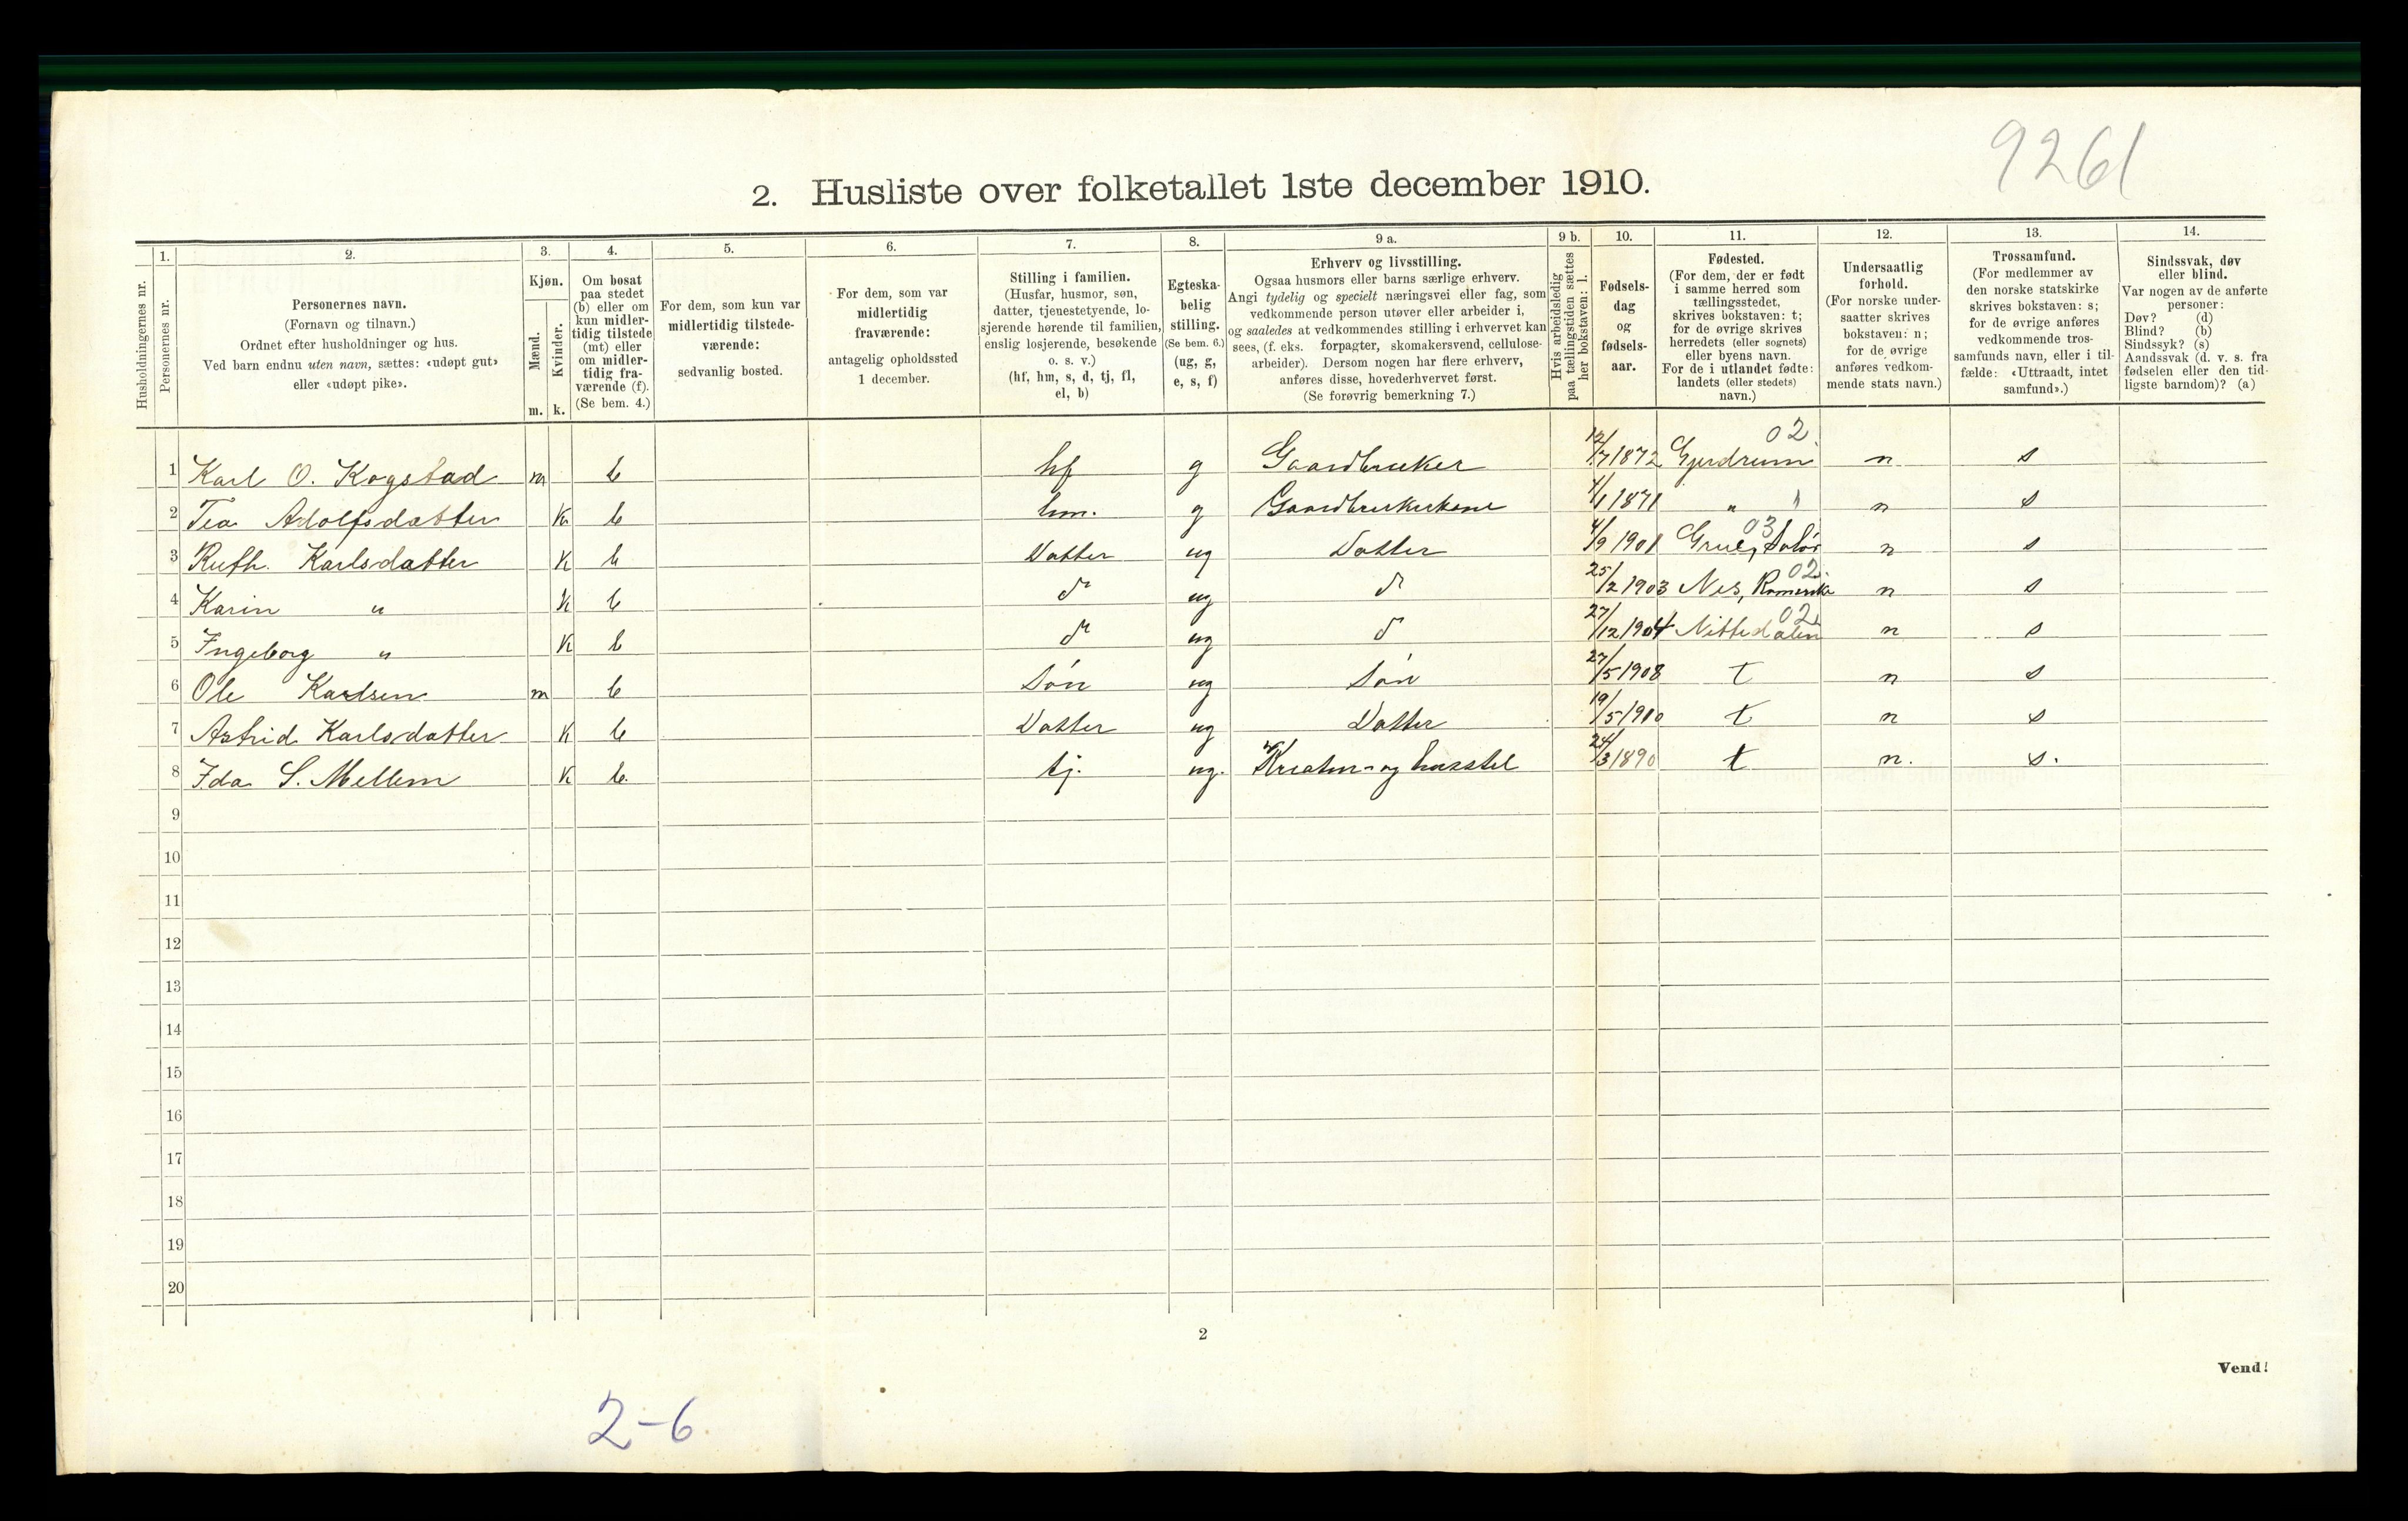 9261
2. Husliste over folketallet 1ste december 1910.
Husholdningernes nr.
1. Personernes nr.
2. Personernes navn. (Fornavn og tilnavn.) Ordnet efter husholdninger og hus. Ved barn endnu uten navn, sættes: «udøpt gut» eller «udøpt pike».
3. Kjøn. Mænd. m. Kvinder. k.
4. Om bosat paa stedet (b) eller om kun midlertidig tilstede (mt) eller om midlertidig fraværende (f). (Se bem. 4.)
5. For dem, som kun var midlertidig tilstedeværende: sedvanlig bosted.
6. For dem, som var midlertidig fraværende: antagelig opholdssted 1 december.
7. Stilling i familien. (Husfar, husmor, søn, datter, tjenestetyende, losjerende hørende til familien, enslig losjerende, besøkende o. s. v.) (hf, hm, s, d, tj, fl, el, b)
8. Egteskabelig stilling. (Se bem. 6.) (ug, g, e, s, f)
9 a. Erhverv og livsstilling. Ogsaa husmors eller barns særlige erhverv. Angi tydelig og specielt næringsvei eller fag, som vedkommende person utøver eller arbeider i, og saaledes at vedkommendes stilling i erhvervet kan sees, (f. eks. forpagter, skomakersvend, cellulosearbeider). Dersom nogen har flere erhverv, anføres disse, hovederhvervet først. (Se forøvrig bemerkning 7.)
9 b. Hvis arbeidsledig paa tællingstiden sættes her bokstaven: l.
10. Fødselsdag og fødselsaar.
11. Fødested. (For dem, der er født i samme herred som tællingsstedet, skrives bokstaven: t; for de øvrige skrives herredets (eller sognets) eller byens navn. For de i utlandet fødte: landets (eller stedets) navn.)
12. Undersaatlig forhold. (For norske undersaatter skrives bokstaven: n; for de øvrige anføres vedkommende stats navn.)
13. Trossamfund. (For medlemmer av den norske statskirke skrives bokstaven: s; for de øvrige anføres vedkommende trossamfunds navn, eller i tilfælde: «Uttraadt, intet samfund».)
14. Sindssvak, døv eller blind. Var nogen av de anførte personer: Døv? (d) Blind? (b) Sindssyk? (s) Aandssvak (d. v. s. fra fødselen eller den tidligste barndom)? (a)
02
1 Karl O. Kogstad m b hf g Gaardbruker 12/7 1872 Gjerdrum n s
2 Tea Adolfsdatter k b hm. g Gaardbrukerkone 4/1 1871 " " n s
03
3 Ruth Karlsdatter k b Datter ug Datter 4/9 1901 Grue, Solør n s
02
4 Karin " k b do ug do 25/2 1903 Nes, Romerike n s
02
5 Ingeborg " k b do ug do 27/12 1904 Nittedalen n s
6 Ole Karlsen m b Søn ug Søn 27/5 1908 t n s
7 Astrid Karlsdatter k b Datter ug Datter 19/5 1910 t n s
8 Ida S. Mellem k b. tj. ug. Kreatur- og husstel 24/3 1890 t n. s.
9
10
11
12
13
14
15
16
17
18
19
20
2
Vend!
2-6